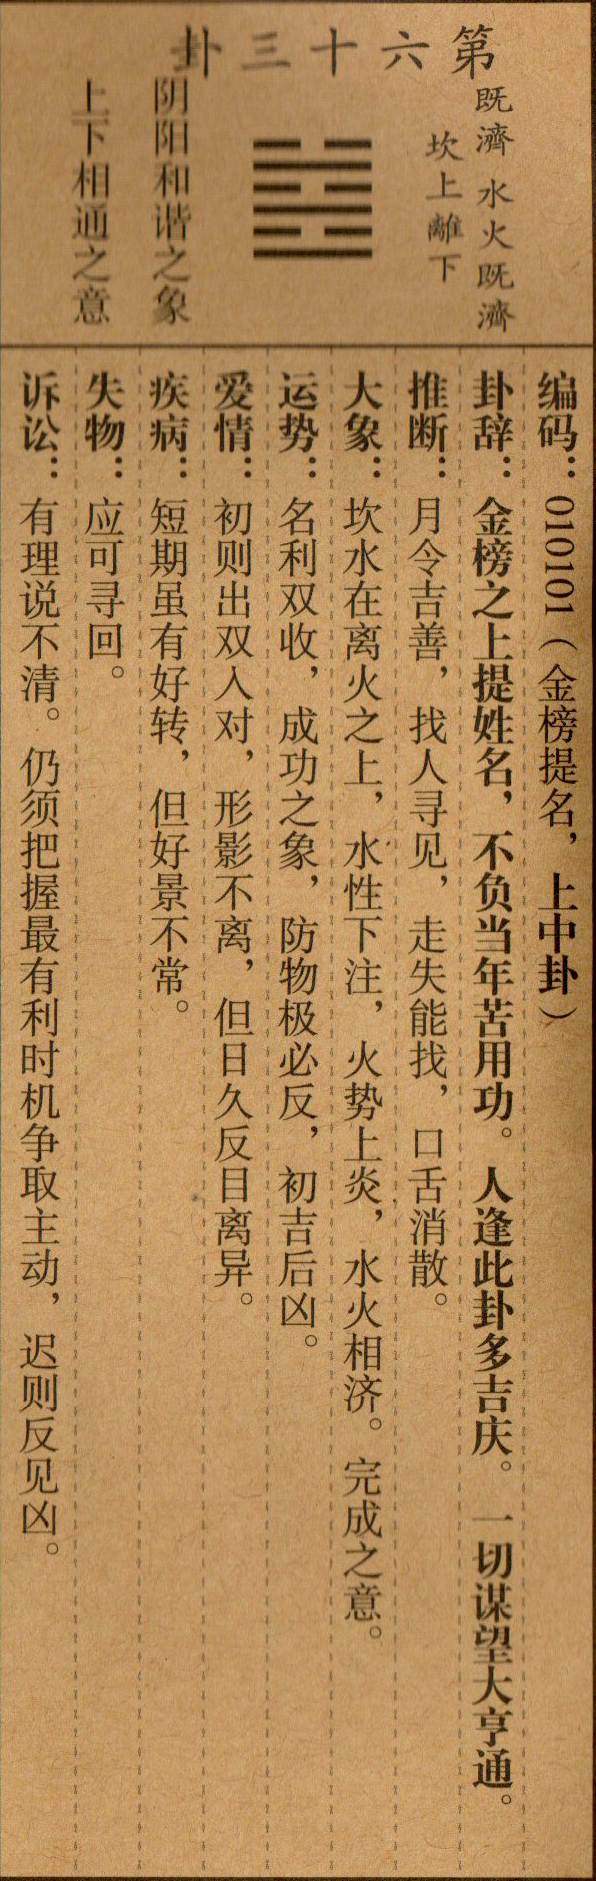 第六十三卦
既濟 水火既濟
坎上離下
阴阳和谐之象
上下相通之意
编码：010101（金榜提名，上中卦）
卦辞：金榜之上提姓名，不负当年苦用功。人逢此卦多吉庆。一切谋望大亨通。
推断：月令吉善，找人寻见，走失能找，口舌消散。
大象：坎水在离火之上，水性下注，火势上炎，水火相济。完成之意。
运势：名利双收，成功之象，防物极必反，初吉后凶。
爱情：初则出双入对，形影不离，但日久反目离异。
疾病：短期虽有好转，但好景不常。
失物：应可寻回。
诉讼：有理说不清。仍须把握最有利时机争取主动，迟则反见凶。